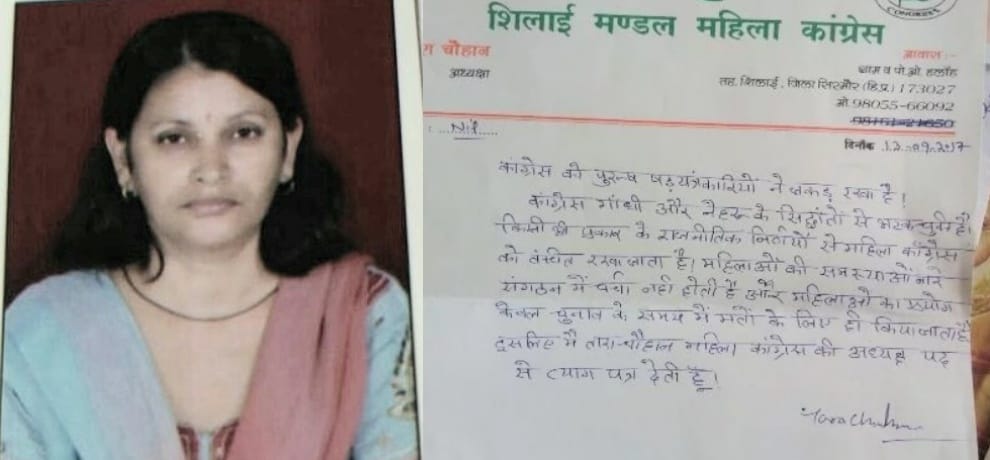 CONGRESS
शिलाई मण्डल महिला कांग्रेस
चौहान
अध्यक्षा
आवास :-
ग्राम व पो.ओ. हलाँह
तह. शिलाई, जिला सिरमौर (हि.प्र.) 173027
मो. 98055-66092
98151-21650
Nil
दिनाँक 12-09-2017
कांग्रेस को पुरुष षड़यंत्रकारियों ने जकड़ रखा है!
कांग्रेस गांधी और नेहरू के सिद्वांतो से भटक चुकी है।
किसी भी प्रकार के राजनीतिक निर्णयों से महिला कांग्रेस
को वंचित रखा जाता है। महिलाओं की समस्याओं बारे
संगठन में चर्चा नहीं होती है और महिलाओं का प्रयोग
केवल चुनाव के समय में मतों के लिए ही किया जाता है
इसलिए मैं तारा चौहान महिला कांग्रेस की अध्यक्ष पद
से त्याग पत्र देती हूँ।
Tara Chauhan